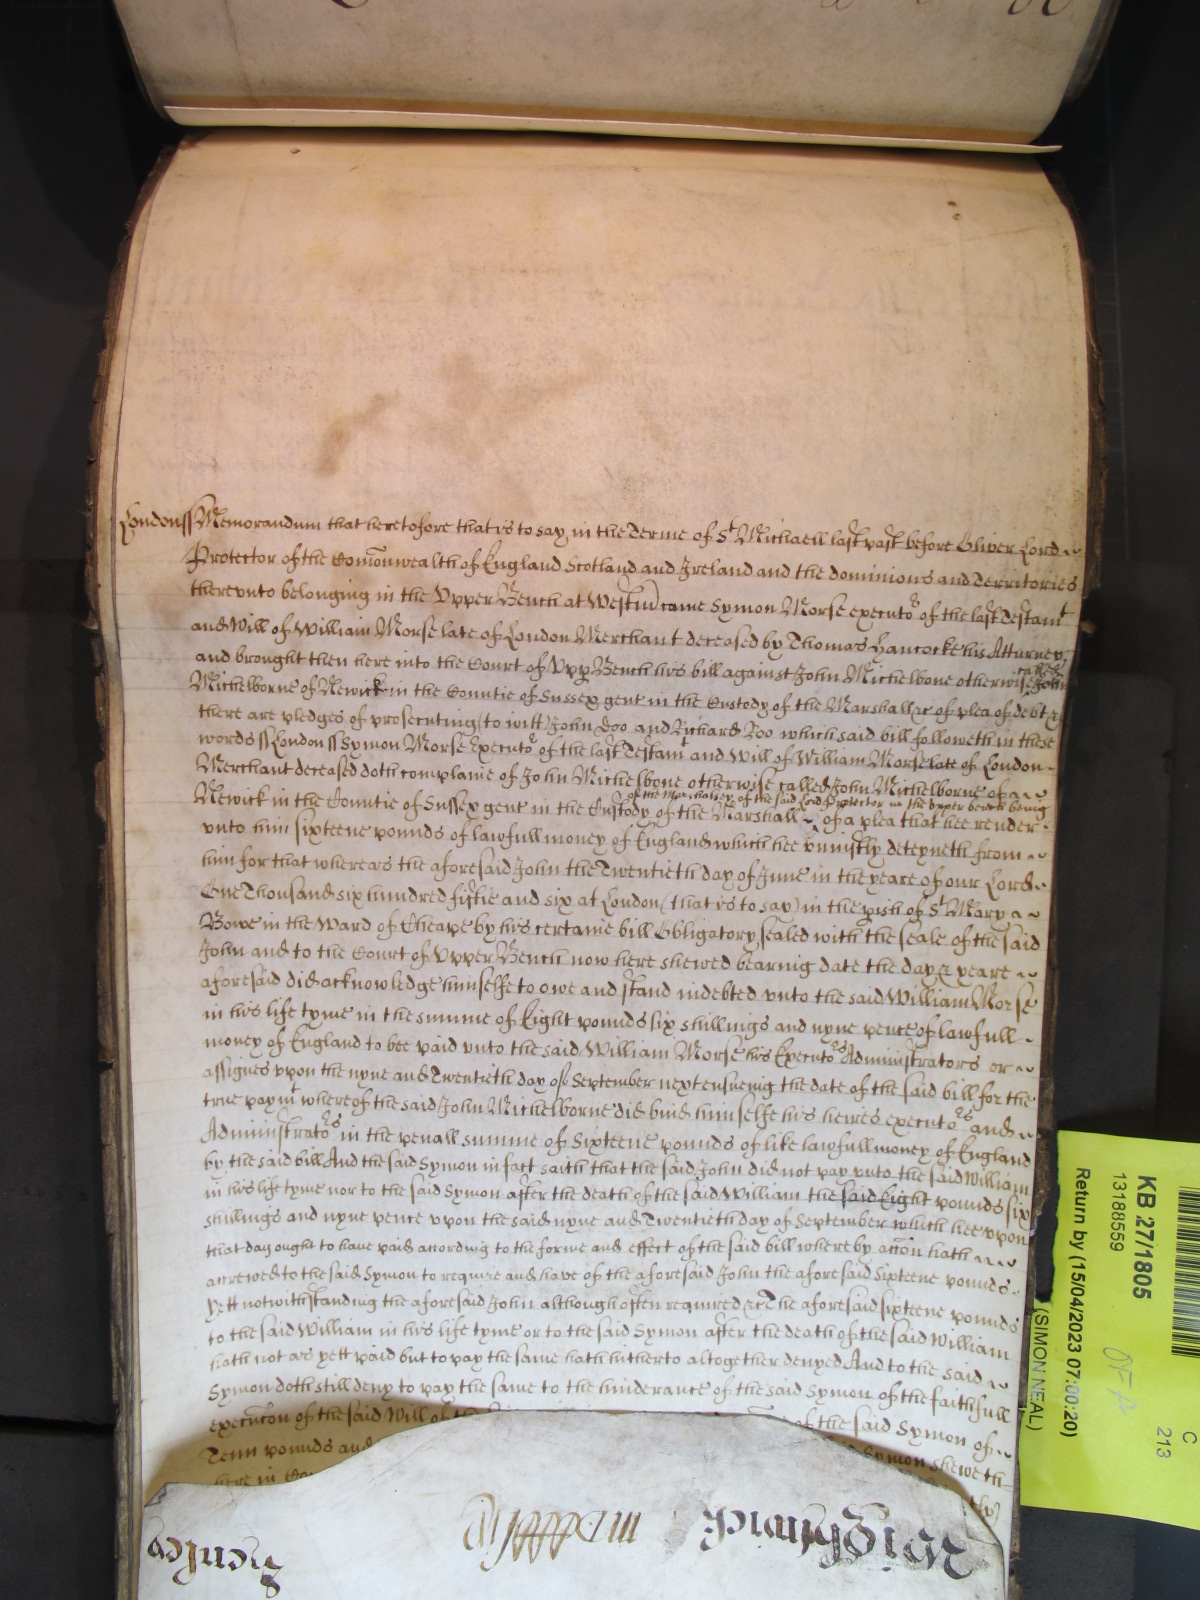 Londonss Memorandum that heretofore that is to say in the Terme of St Michaell last past before Oliver Lord
Protector of the Comonwealth of England Scotland and Ireland and the dominions and Territories
therevnto belonging in the Vpper Bench at Westm came Symon Morse executor of the last Testamt
and Will of William Morse late of London Merchant deceased by Thomas Hancocke his Atturney
and brought then here into the Court of Vpp Bench his bill against John Michelbone otherwise called John
Michelborne of Newick in the Countie of Sussex gent in the Custody of the Marshall &c of plea of debt &
there are pledges of prosecuting (to witt) John Doo and Richard Roo which said bill followeth in these
words ss London ss Symon Morse Executor of the last Testamt and Will of William Morse late of London
Merchant deceased doth complaine of John Michelbone otherwise called John Michelborne of
Newick in the Countie of Sussex gent in the Custody of the Marshall of the Marshalsey of the said Lord Protector in the vpper bench being of a plea that hee render
vnto him sixteene pounds of lawfull money of England which hee vniustly deteyneth from
him for that whereas the aforesaid John the Twentieth day of June in the yeare of our Lord
One Thousand six hundred fiftie and six at London (that is to say) in the pish of St Mary a
Bowe in the Ward of Cheape by his certaine bill Obligatory sealed with the seale of the said
John and to the Court of Vpper Bench now here shewed bearing date the day & yeare
aforesaid did acknowledge himselfe to owe and stand indebted vnto the said William Morse
in his life tyme in the summe of Eight pounds six shillings and nyne pence of lawfull
money of England to bee paid vnto the said William Morse his Executors Administrators or
assignes vpon the nyne and Twentieth day of September next ensueing the date of the said bill for the
true paymt whereof the said John Michelborne did bind himselfe his heires executors and
Administrators in the penall summe of Sixteene pounds of like lawfull money of England
by the said bill And the said Symon in fact saith that the said John did not pay vnto the said William
in his life tyme nor to the said Symon after the death of the said William the said Eight pounds six
shillings and nyne pence vpon the said nyne and Twentieth day of September which hee vpon
that day ought to have paid according to the forme and effect of the said bill whereby accon hath
accrewed to the said Symon to require and have of the aforesaid John the aforesaid Sixteene pounds
Yett notwithstanding the aforesaid John although often required &c The aforesaid sixteene pounds
to the said William in his life tyme or to the said Symon after the death of the said William
hath not as yett paid but to pay the same hath hitherto altogether denyed And to the said
Symon doth still deny to pay the same to the hinderance of the said Symon of the faithfull
execucon of the said Will of the of the said Symon of
Tenn pounds and Symon sheweth
here in Co
KB 27/1805
13188559
Return by (15/04/2023 07:00:20)
(SIMON NEAL)
C
213